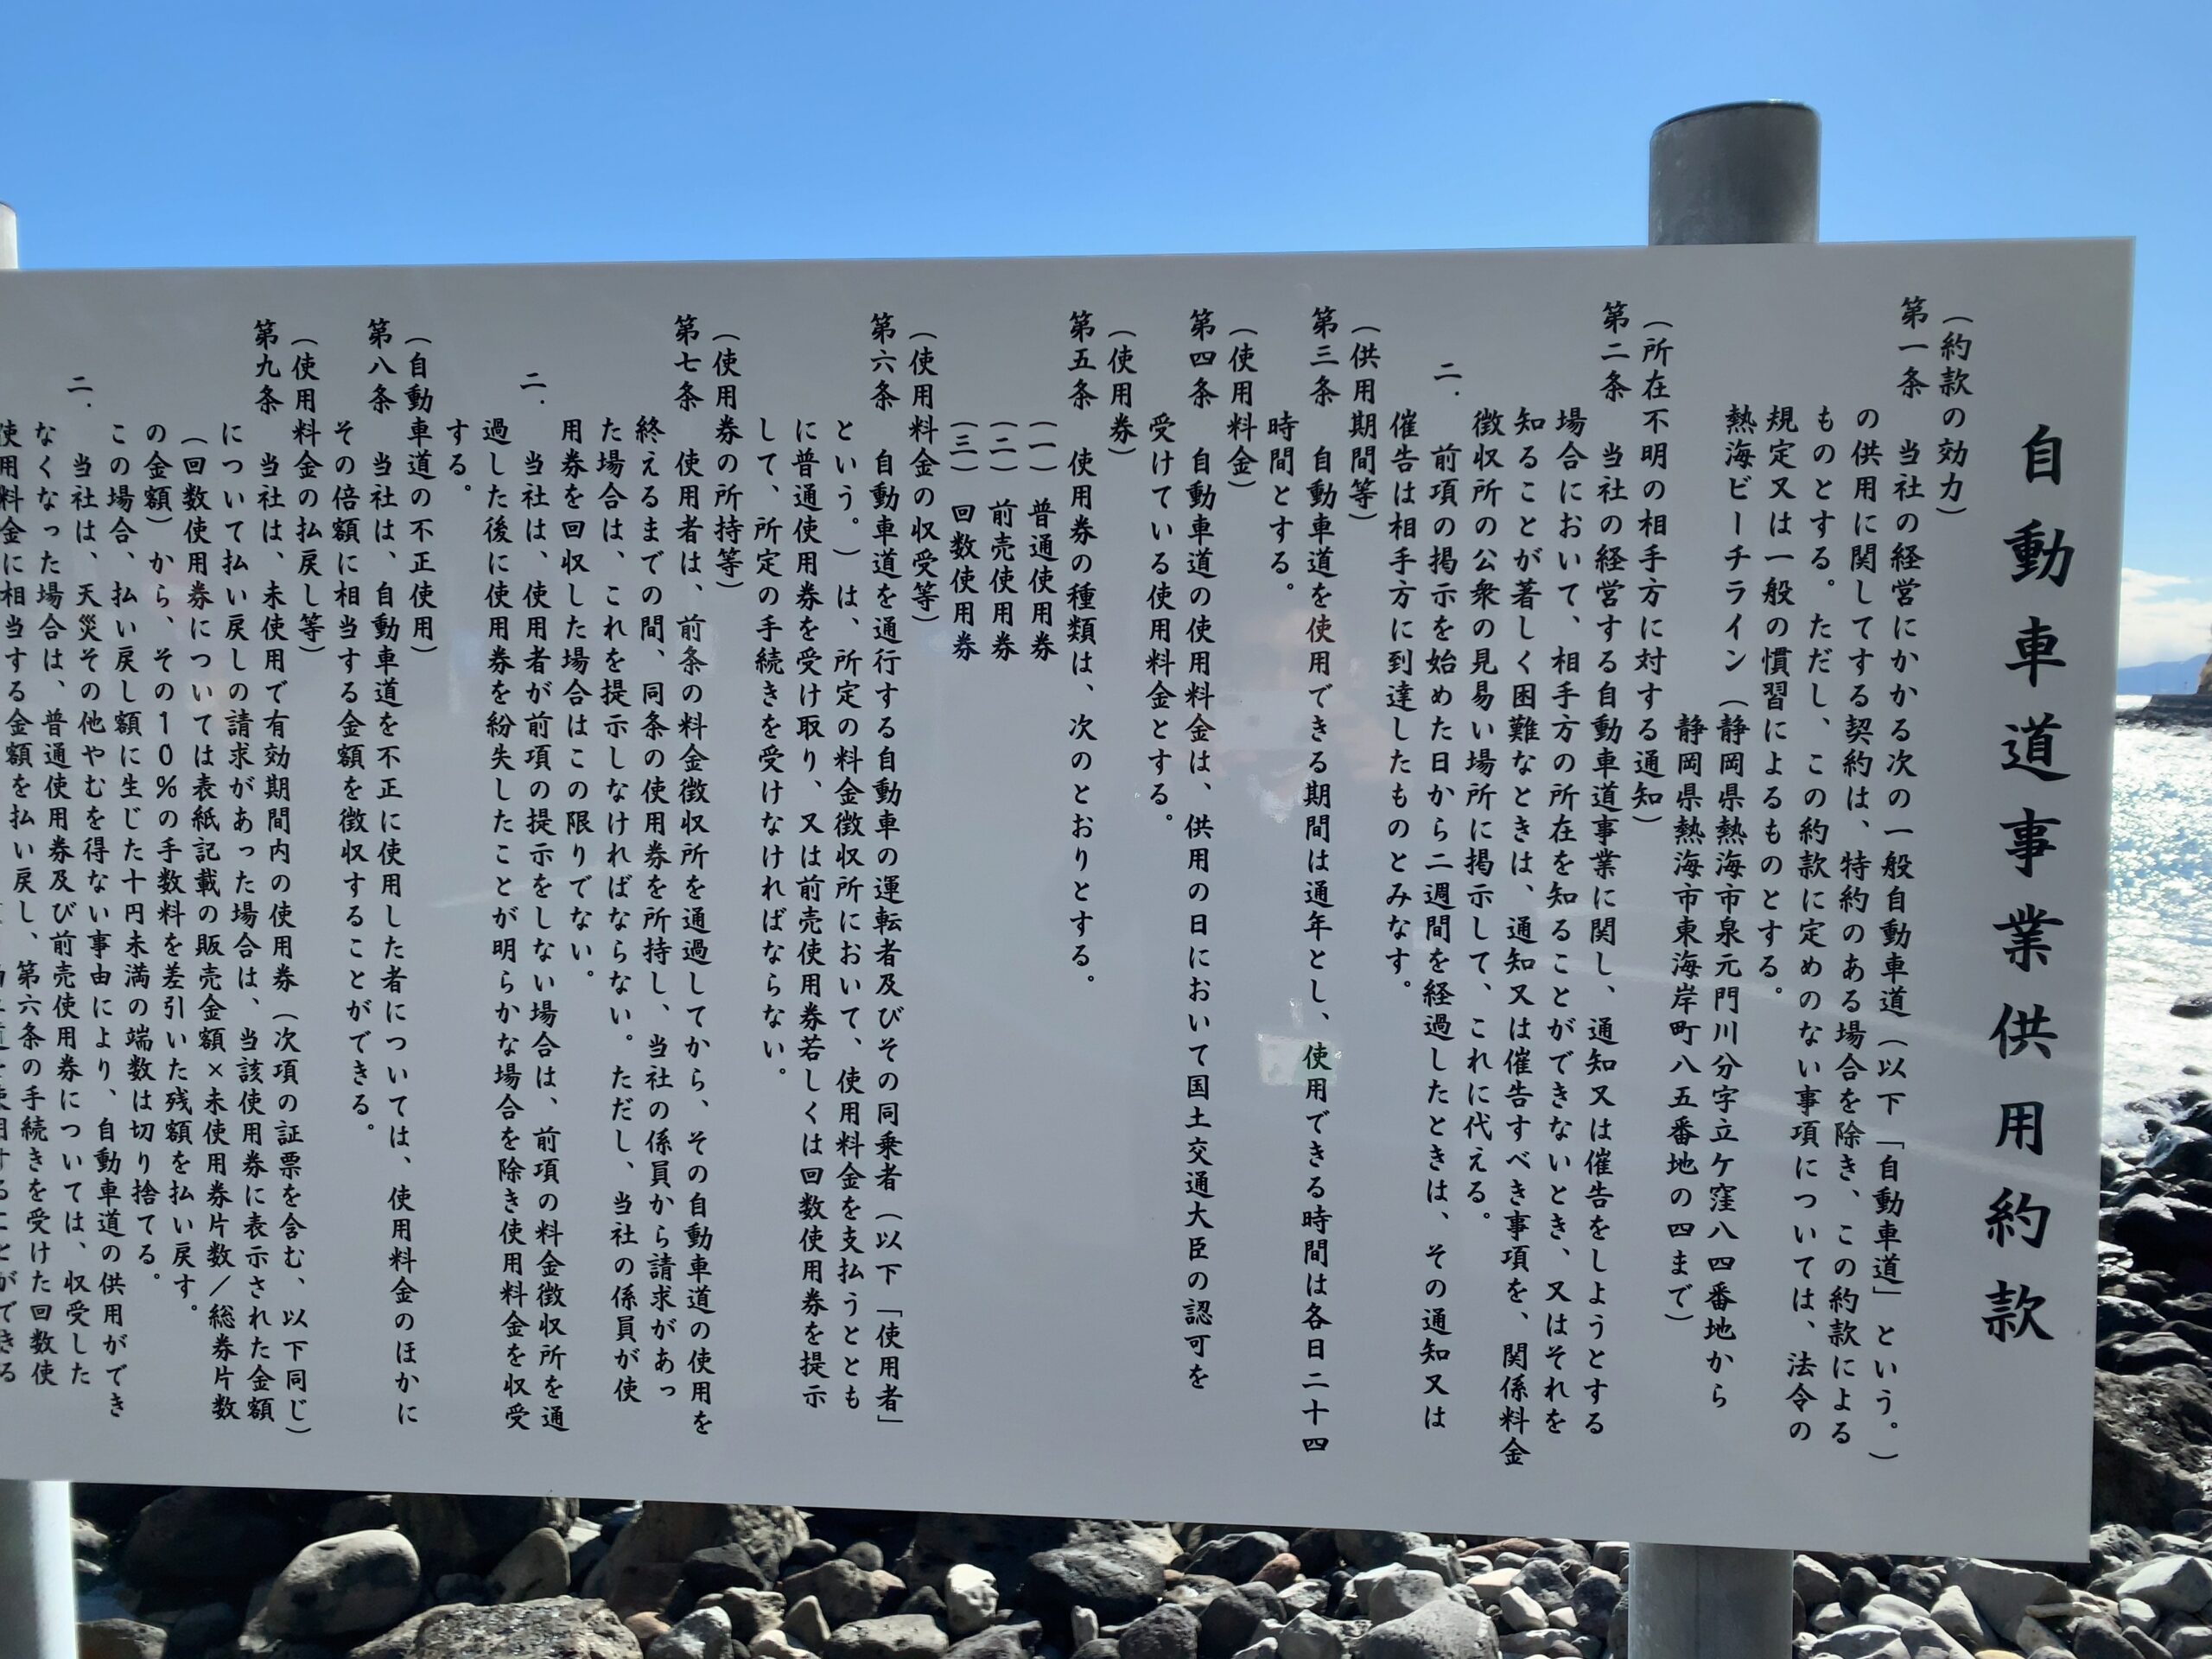 自動車道事業供用約款
（約款の効力）
第一条　当社の経営にかかる次の一般自動車道（以下「自動車道」という。）
の供用に関してする契約は、特約のある場合を除き、この約款による
ものとする。ただし、この約款に定めのない事項については、法令の
規定又は一般の慣習によるものとする。
熱海ビーチライン（静岡県熱海市泉元門川分字立ケ窪八四番地から
静岡県熱海市東海岸町八五番地の四まで）
（所在不明の相手方に対する通知）
第二条　当社の経営する自動車道事業に関し、通知又は催告をしようとする
場合において、相手方の所在を知ることができないとき、又はそれを
知ることが著しく困難なときは、通知又は催告すべき事項を、関係料金
徴収所の公衆の見易い場所に掲示して、これに代える。
二．　前項の掲示を始めた日から二週間を経過したときは、その通知又は
催告は相手方に到達したものとみなす。
（供用期間等）
第三条　自動車道を使用できる期間は通年とし、使用できる時間は各日二十四
時間とする。
（使用料金）
第四条　自動車道の使用料金は、供用の日において国土交通大臣の認可を
受けている使用料金とする。
（使用券）
第五条　使用券の種類は、次のとおりとする。
（一）　普通使用券
（二）　前売使用券
（三）　回数使用券
（使用料金の収受等）
第六条　自動車道を通行する自動車の運転者及びその同乗者（以下「使用者」
という。）は、所定の料金徴収所において、使用料金を支払うととも
に普通使用券を受け取り、又は前売使用券若しくは回数使用券を提示
して、所定の手続きを受けなければならない。
（使用券の所持等）
第七条　使用者は、前条の料金徴収所を通過してから、その自動車道の使用を
終えるまでの間、同条の使用券を所持し、当社の係員から請求があっ
た場合は、これを提示しなければならない。ただし、当社の係員が使
用券を回収した場合はこの限りでない。
二．　当社は、使用者が前項の提示をしない場合は、前項の料金徴収所を通
過した後に使用券を紛失したことが明らかな場合を除き使用料金を収受
する。
（自動車道の不正使用）
第八条　当社は、自動車道を不正に使用した者については、使用料金のほかに
その倍額に相当する金額を徴収することができる。
（使用料金の払戻し等）
第九条　当社は、未使用で有効期間内の使用券（次項の証票を含む、以下同じ）
について払い戻しの請求があった場合は、当該使用券に表示された金額
（回数使用券については表紙記載の販売金額×未使用券片数／総券片数
の金額）から、その10％の手数料を差引いた残額を払い戻す。
この場合、払い戻し額に生じた十円未満の端数は切り捨てる。
二．　当社は、天災その他やむを得ない事由により、自動車道の供用ができ
なくなった場合は、普通使用券及び前売使用券については、収受した
使用料金に相当する金額を払い戻し、第六条の手続きを受けた回数使